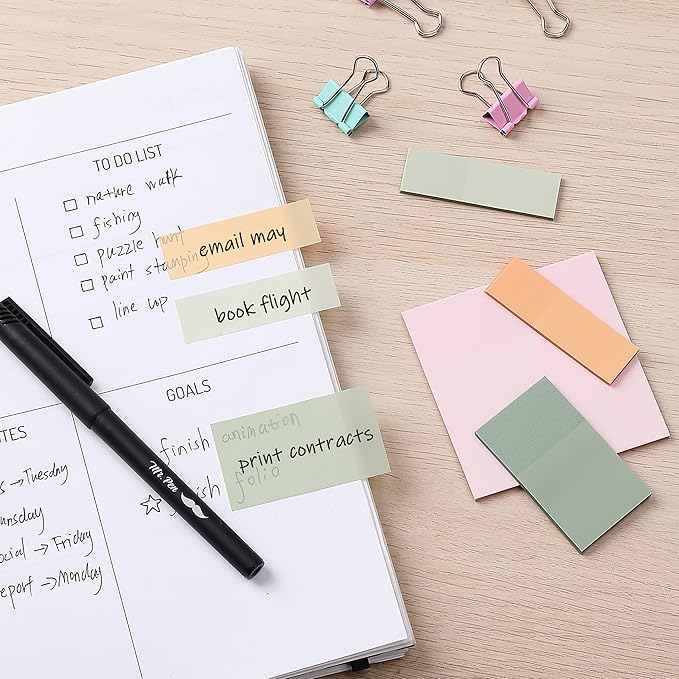 TO DO LIST
nature walk
fishing
puzzle hunt
paint stamping
line up
email may
book flight
GOALS
finish animation
finish folio
print contracts
→Tuesday
→ Friday
→Monday
Mr. Pen